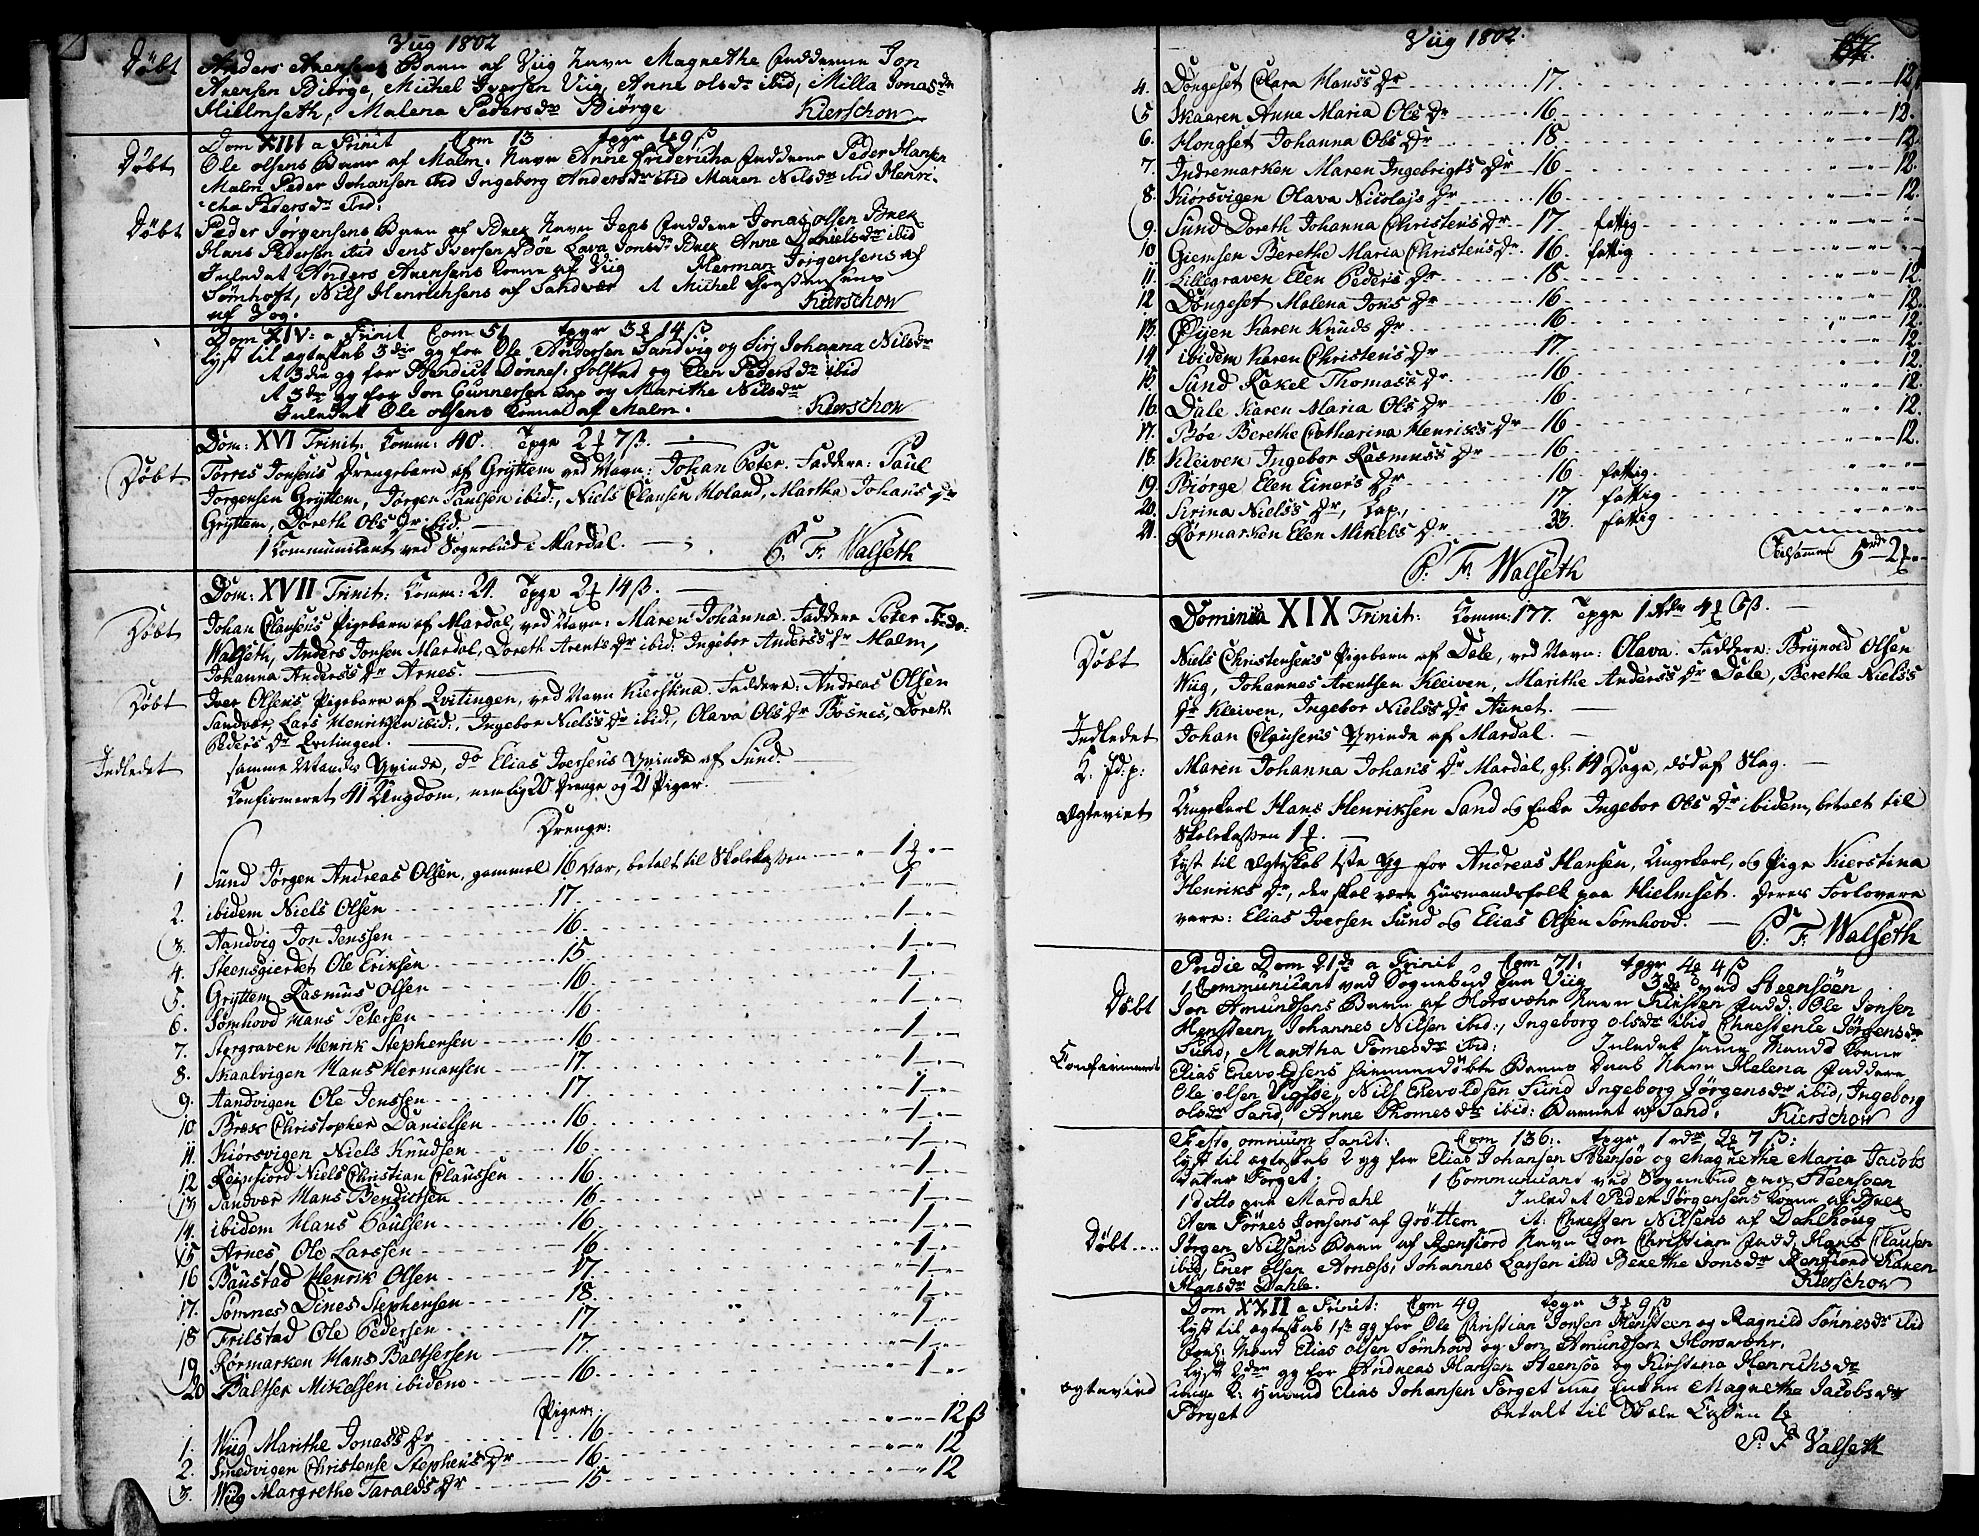 Viig 1802
Døbt Anders Arensens Barn af Viig Navn Magnethe Fadderne Jon
Arensen Biørge, Michel Iversen Viig, Anne olsdr ibid, Milla Jonasdr
Hielmseth, Malena Pedersdr Biørge Kierschow
Dom XIII a Trinit Com 13 tpgr 1 ʒ 9 β
Døbt Ole olsens Barn af Malm. Navn Anne Fridericha Faddere Peder Hansen
Malm Peder Johansen ibid Ingeborg Andersdr ibid Maren Nilsdr ibid Henri-
cha Pedersdr ibid.
Døbt Peder Jørgensens Barn af Brex Navn Jens Faddere Jonas olsen Brex
Hans Pedersen ibid Jens Iversen Bøe Lava Jonsdr Brex Anne Danielsdr ibid
Inledet Anders Arensens Kone af Viig Herman Jørgensens af
Sømhoft, Nils Henrichsens af Sandvær It Michel
af Bog. Kierschow
Dom XIV: a Trinit Com 51 tpgr 3 ʒ 14 β
lyst til ægteskab 3die gg for Ole Andersen Sandvig og Sirj Johanna Nilsdr
It 3die gg for Bendict Donnes. folstad og Elen Pedersdr ibid
It 3die gg for Jon Gunnersen og Marithe Nilsdr
Inledet Ole olsens Kone af Malm. Kierschow
Dom: XVI Trinit: Komm: 40. Tpge 2 ʒ 7 β.
Døbt Torris Jonsens Drengebarn af Gryttem ved Navn: Johan Peter. Faddere: Paul
Jørgensen Gryttem, Jørgen Paulsen ibid:, Niels Clausen Moland, Martha Johans Dr
Gryttem, Doreth Ols Dr ibid.
1 Kommunicant ved Sognebud i Mardal. P: F: Walseth
Dom: XVII Trinit: Komm: 24. Tpge 2 ʒ 14 β.
Døbt Johan Clausens Pigebarn af Mardal, ved Navn: Maren Johanna. Faddere Peter Fr:
Walseth, Anders Jonsen Mardal, Doreth Arents Dr ibid. Ingebor Anderss Dr Malm,
Johanna Anderss Dr Arnes.
Døbt Iver Olsens Pigebarn af Qvitingen, ved Navn Kierstina. Faddere: Andreas Olsen
Sandvær, Lars Henriksen ibid:, Ingebor Nielss Dr ibid:, Olava Ols Dr Bosnes, Doreth
Peders Dr Qvitingen.
Indledet samme Mands Qvinde, do Elias Iversens Qvinde af Sund.
Konfirmeret 41 Ungdom, nemlig 20 Drenge og 21 Piger.
Drenge:
1 Sund Jørgen Andreas Olsen, gammel 16 Aar, betalt til Skolekassen - 1 ʒ -
2. ibidem Niels Olsen 17. 1
3. Aandvig Jon Jenssen 16. 1
4. Steensgierdet Ole Eriksen 15 1
5. Gryttem Rasmus Olsen 16 1
6. Sømhovd Hans Petersen 16. 1
7. Storgraven Henrik Stephensen 16 1
8. Skaalvigen Hans Hermansen 17. 1
9. Aandvigen Ole Jenssen 17. 1
10 Bræk Christopher Danielsen 16. 1
11. Kiørsvigen Niels Knudsen 16. 1
12 Reinfiord Niels Christian Claussen 16. 1
13 Sandvær Hans Bendictsen 16 1
14. ibidem Hans Paulsen 16. 1
15 Arnes Ole Larssen 16. 1
16 Baustad Henrik Olsen 17 1
17. Somnes Dines Stephensen 18. 1
18 Trilstad Ole Pedersen 17. 1
19 Rørmarken Hans Balthersen 17. 1
20 Balthser Mikelsen ibidem 16. 1
Piger.
1. Wiig Marithe Jonass Dr 16. 12 β
2. Smedvigen Christense Stephens Dr 16. 12
3. Wiig Margrethe Taralds Dr 15 12
Viig 1802.
4. Dongeset Clara Hanss Dr 17. 12
5 Skaaren Anne Maria Ols Dr 16. 12.
6. Hongset Johanna Ols Dr 18. 12
7. Indremarken Maren Ingebrigts Dr 16 12.
8. Kiørsvigen Olava Nicolajs Dr 16 12.
9. Sund Doreth Johanna Christens Dr 17. fattig
10 Giemsen Berethe Maria Christens Dr 16. fattig
11 Lillegraven Elen Peders Dr 18 12
12 Dongeset Malena Jons Dr 16 12.
13. Øyen Karen Knuds Dr 16. 12.
14. ibidem Karen Christens Dr 17. 12
15 Sund Rakel Thomass Dr 16 12.
16. Dale Karen Maria Ols Dr 16. 12.
17. Bøe Berethe Catharina Henriks Dr 16 12.
18. Kleiven Ingebor Rasmuss Dr 16
19. Biørge Elen Einers Dr 16 fattig.
20. Sirina Nielss Dr, Lap., 17 fattig
21. Rørmarken Elen Mikels Dr 33. fattig
Tilsammen 5 rdr 2 ʒ
P: F: Walseth
Dominica XIX Trinit: Komm: 177. Tpge 1 Rdr 4 ʒ 6 β.
Døbt Niels Christensens Pigebarn af Dale, ved Navn: Olava. Faddere: Brynold Olsen
Wiig, Johannes Arentsen Kleiven, Marithe Anderss Dr Dale, Berethe Nielss
Dr Kleiven, Ingebor Nielss Dr Aunet.
Indledet Johan Clausens Qvinde af Mardal.
K: Jd: p: Maren Johanna Johans Dr Mardal, gl: 14 Dage, død af Slag.
Ægteviet Ungekarl Hans Henriksen Sand og Enke Ingebor Ols Dr ibidem, betalt til
Skolekassen 1 ʒ.
Lyst til Ægteskab 1ste gg for Andreas Hansen, Ungekarl, og Pige Kierstina
Henriks Dr, der skal være Huusmandsfolk paa Hielmset. Deres Forlovere
vare: Elias Iversen Sund og Elias Olsen Sømhovd. P: F: Walseth
Pridie Dom 21de a Trinit Com 71: tpgr 4 ʒ 4 β
1 Communicant ved Sognebud paa Viig 3de ved Steensöen
Døbt Jon Amundsens Barn af Horsvohr Navn Kirsten Fadd: Ole Jonsen
Hensteen, Johannes Nilsen ibid:, Ingeborg olsdr ibid Chrestenle Jørgensdr
Sund, Martha Tomesdr ibid: Inledet same Mands Kone
Confirmeret Elias Enevoldsens hiemmedøbte Barns Daab Navn Malena Faddere
Ole olsen Vigsøe, Nils Enevoldsen Sund Ingeborg Jørgensdr ibid, Ingeborg
olsdr Sand, Anne Thomesdr ibid: Barnet af Sand. Kierschow
Festo omnium Sanct: Com 136: tpgr 1 rdr 2 ʒ 7 β:
lyst til ægteskab 2 gg for Elias Johansen Steensøe og Magnethe Maria Jacobs
Datter Forget. 1 Communicant ved Sognebud paa Steensøen
1 ditto paa Mardahl Inledet Peder Jørgensens Kone af Brex
Item Tørres Jonsens af Grøttem it: Chresten Nilsens af Dahlhoug
Døbt.... Jørgen Nilsens Barn af Renfiord Navn Jon Christian Fadd. Hans Clausen
ibid, Ener olsen Arness, Johannes Larsen ibid Berethe Jonsdr Renfiord Karen
Hansdr Dahle. Kierschow
Dom XXII a Trinit: Com 49 tpgr 3 ʒ 9 β
lyst til ægteskab 1ste gg for Ole Christian Jonsen Hensteen og Ragnild Tønnesdr ibid
Elias olsen Sømhovd og Jon Amundsen Horsvohr.
lyst 2den gg for Andreas Hansen Steensøe og Kirstina Henrichsdr
ægteviid unge K: ymand Elias Johansen Forget med Enken Magnethe Jacobsdr
Forget betalt til Skole Cassen 1 ʒ
P. F Valseth